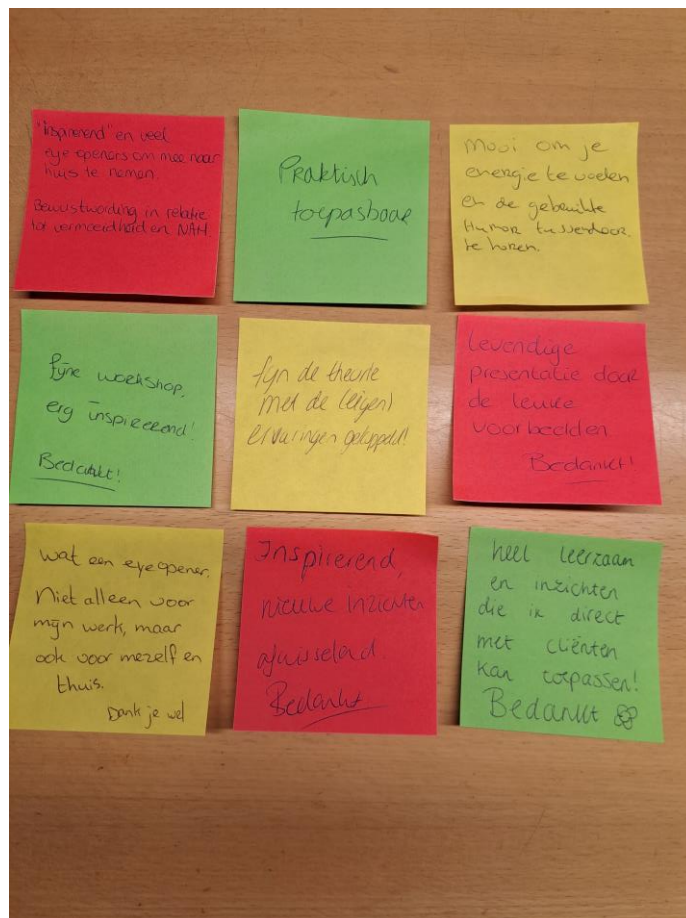 "Inspirerend" en veel
eye openers om mee naar
huis te nemen.
Bewustwording in relatie
tot vermoeidheid en NAH.
Praktisch
toepasbaar
Mooi om je
energie te voelen
en de gebruikte
Humor tussendoor
te horen.
Fijne workshop,
erg inspirerend!
Bedankt!
fijn de theorie
met de (eigen)
ervaringen gekoppeld!
Levendige
presentatie door
de leuke
voorbeelden
Bedankt!
wat een eye opener.
Niet alleen voor
mijn werk, maar
ook voor mezelf en
thuis.
Dank je wel
Inspirerend,
nieuwe inzichten
afwisselend.
Bedankt
heel leerzaam
en inzichten
die ik direct
met cliënten
kan toepassen!
Bedankt